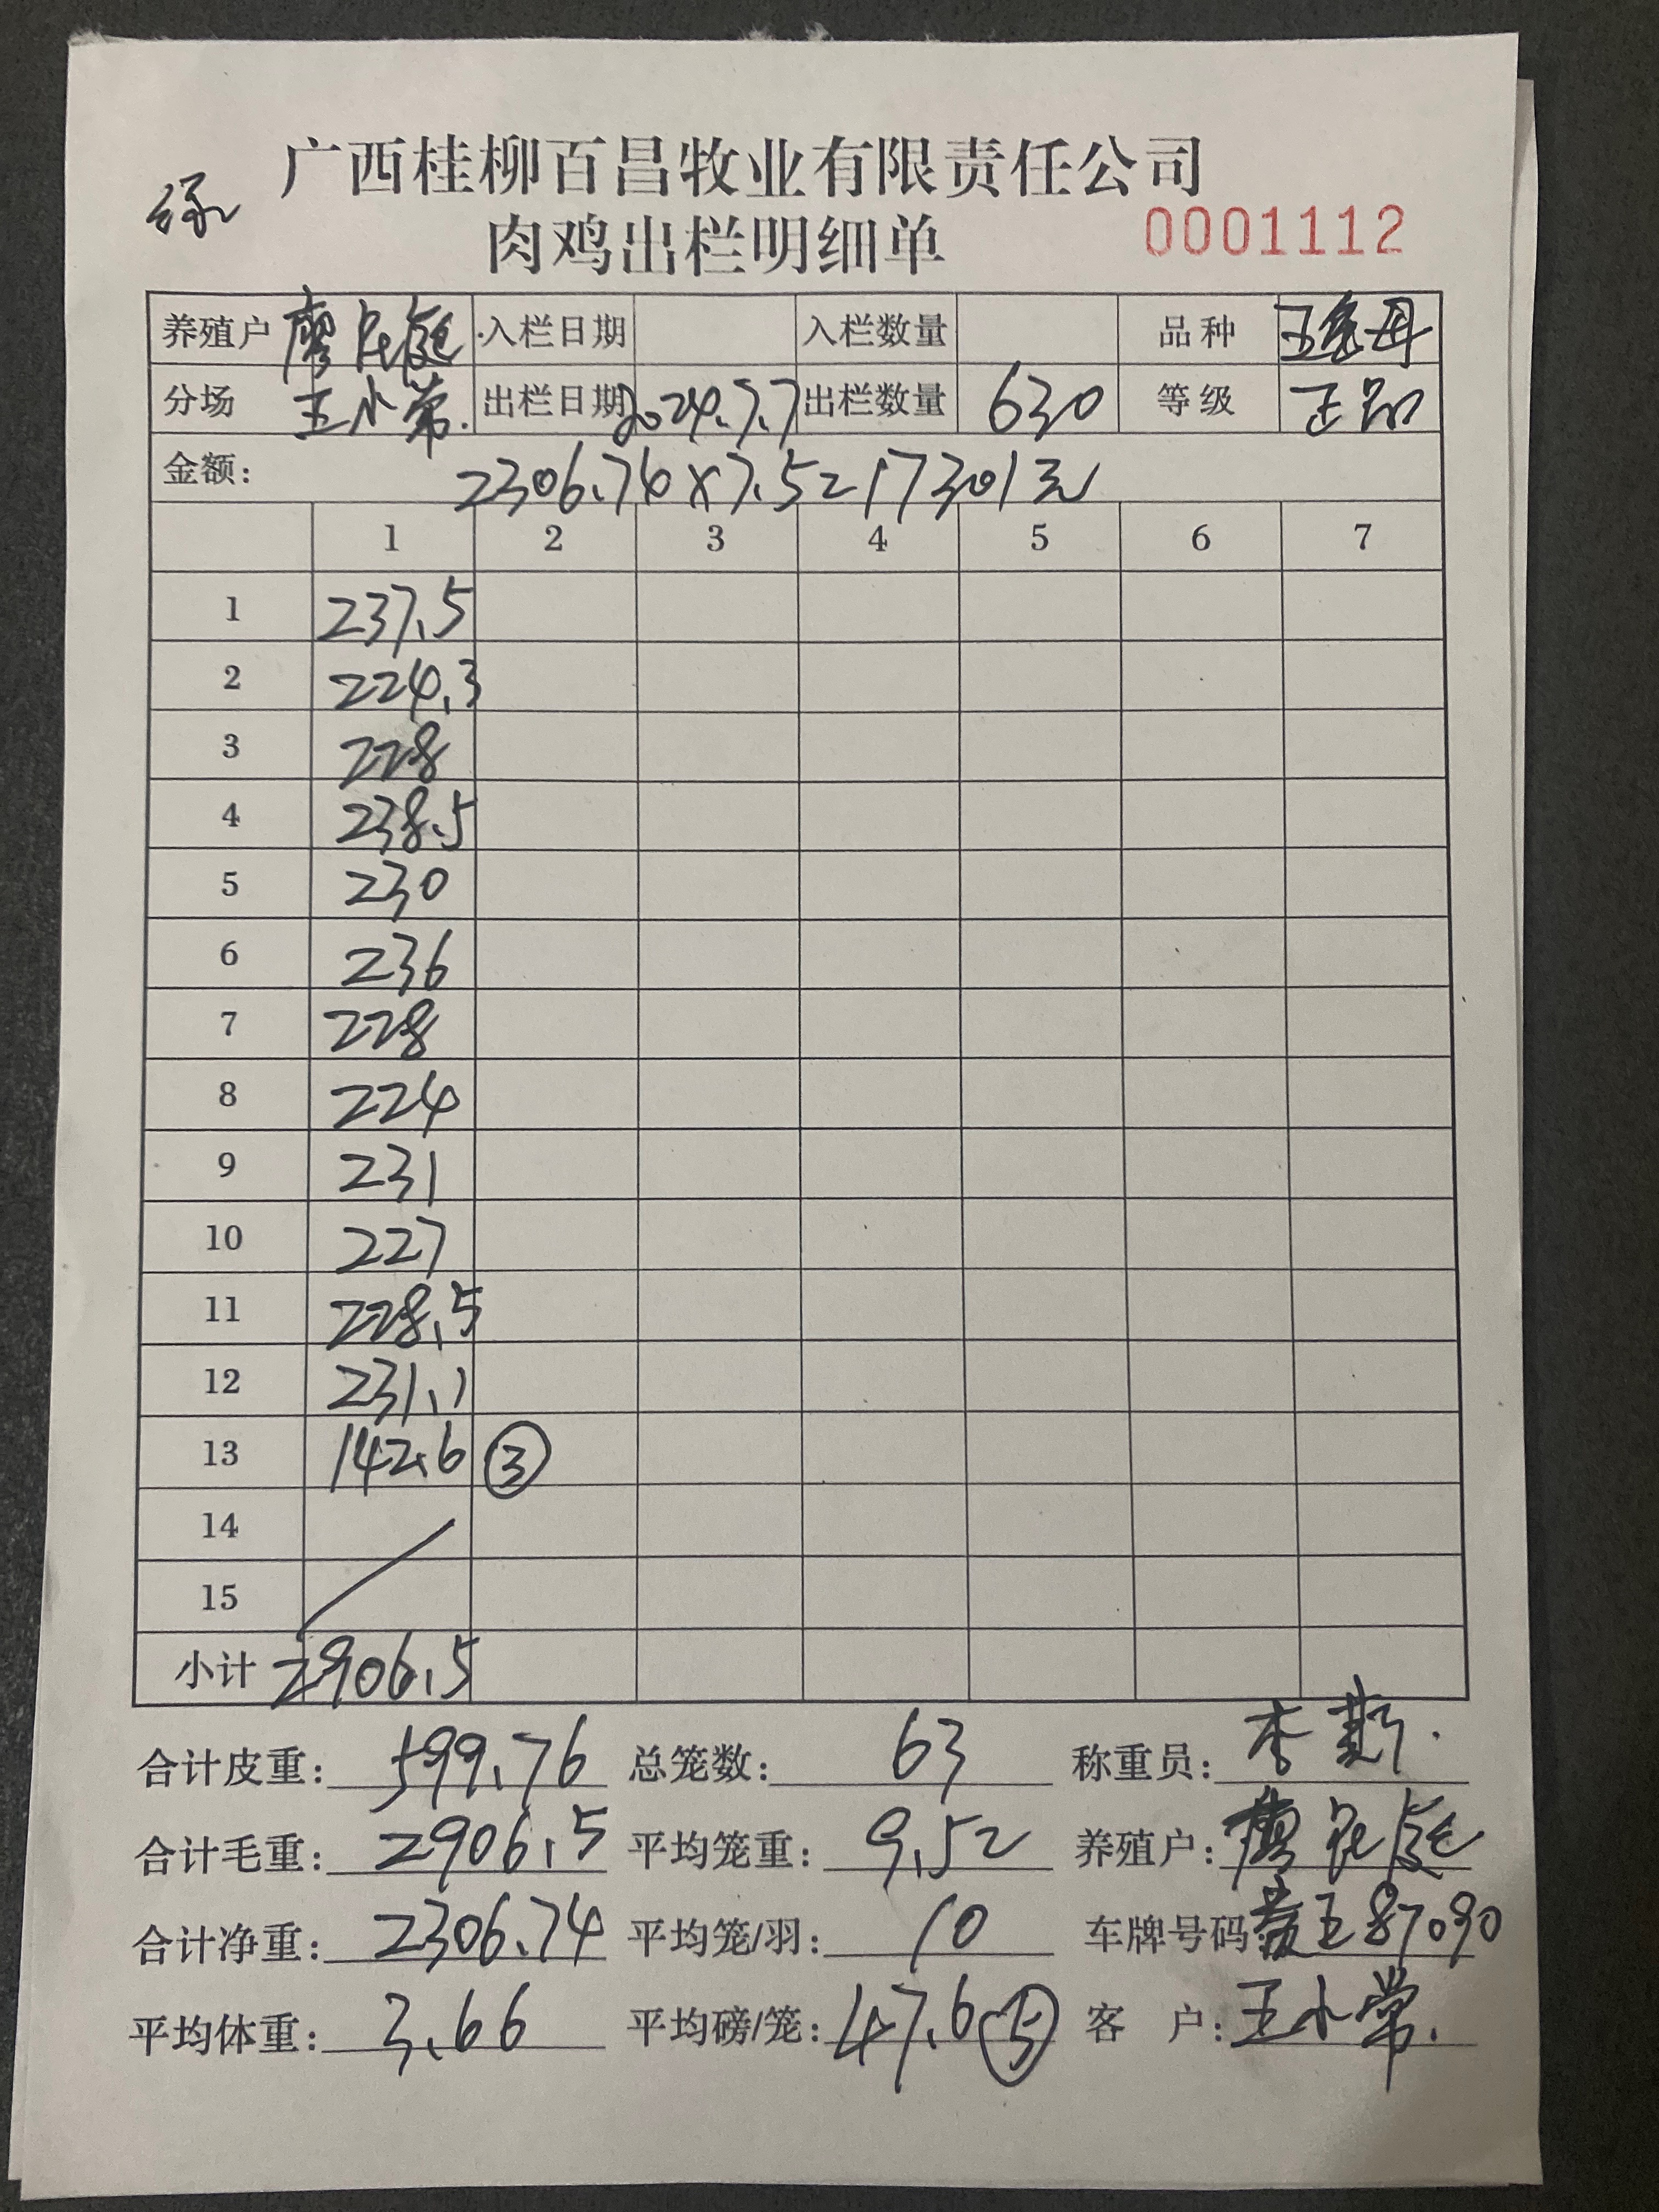 广西桂柳百昌牧业有限责任公司
绿
肉鸡出栏明细单 0001112
养殖户 廖 入栏日期 入栏数量 品种
分场 王小常. 出栏日期 2024.7.7 出栏数量 630 等级 正品
金额: 2306.74×7.5=17301元
1 2 3 4 5 6 7
1 237.5
2 224.3
3 228
4 238.5
5 230
6 236
7 228
8 224
9 231
10 227
11 228.5
12 231.1
13 142.6 ③
14
15
小计 2906.5
合计皮重: 599.76 总笼数: 63 称重员: 李
合计毛重: 2906.5 平均笼重: 9.52 养殖户: 廖
合计净重: 2306.74 平均笼/羽: 10 车牌号码 87090
平均体重: 3.66 平均磅/笼: 47.6 ⑤ 客 户: 王小常.